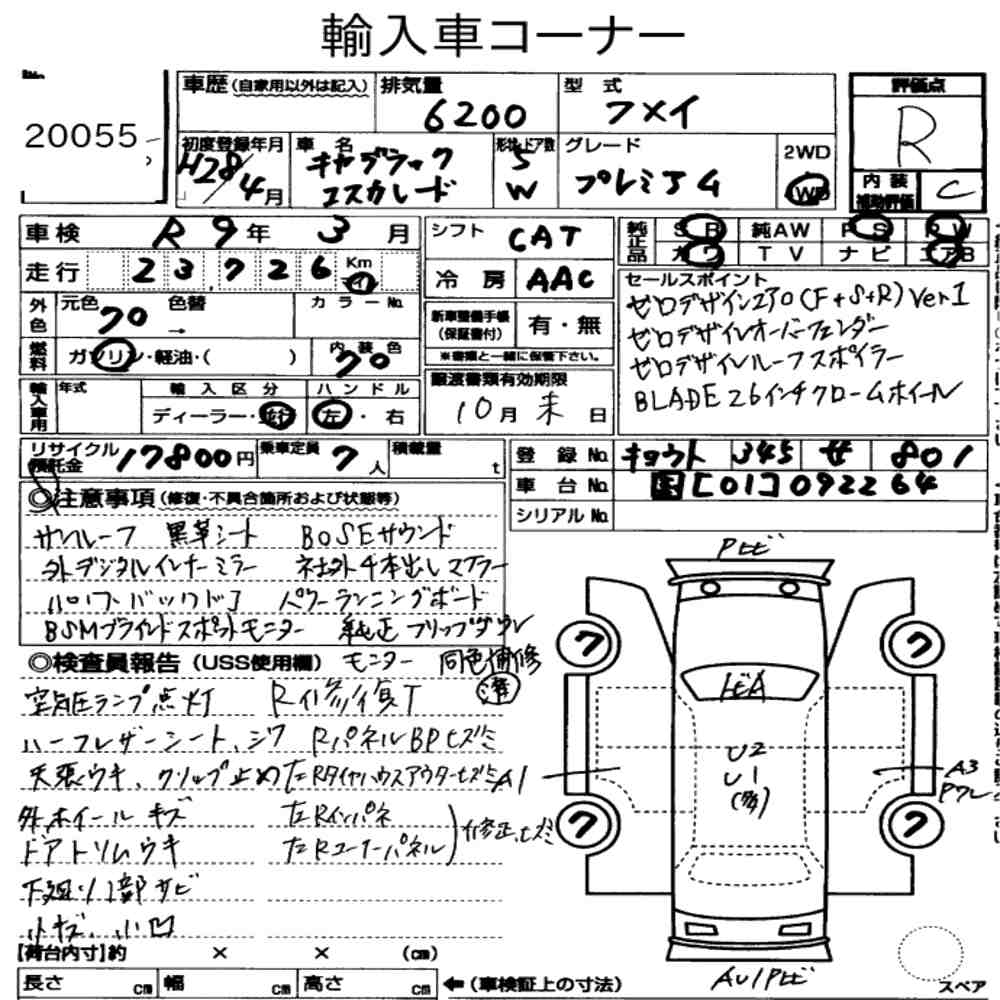 輸入車コーナー
No.
20055
車歴 (自家用以外は記入)
排気量
6200
型式
フメイ
評価点
R
初度登録年月
H28/4月
車名
キャデラック
エスカレード
形状・ドア数
5
W
グレード
プレミアム
2WD
4WD
内装
補助評価
C
車検 R 9年 3月
シフト CAT
純正品 SR 純AW PS PW
カワ TV ナビ エアB
走行 23,726 Km マイ
冷房 AAC
セールスポイント
ゼロデザインエアロ(F+S+R) Ver1
ゼロデザインオーバーフェンダー
ゼロデザインルーフスポイラー
BLADE 26インチクロームホイール
外色 元色 クロ 色替 → カラーNo.
新車整備手帳
(保証書付)
有・無
※書類と一緒に保管下さい。
燃料 ガソリン・軽油・( )
内装色 クロ
譲渡書類有効期限
10月 末日
輸入車用 年式
輸入区分
ディーラー・並行
ハンドル
左・右
リサイクル
預託金
17800円
乗車定員 7人
積載量 t
登録No. キョウト 345 せ 801
車台No. 国[01]092264
シリアルNo.
◎注意事項 (修復・不具合箇所および状態等)
サンルーフ 黒革シート BOSEサウンド
外デジタルインナーミラー 社外4本出しマフラー
パワーバックドア パワーランニングボード
BSMブラインドスポットモニター 純正フリップダウン
モニター 同色補修
済
◎検査員報告 (USS使用欄)
空気圧ランプ点灯 R修復
ハーフレザーシート、シワ RパネルBPヒズミ
天張ウキ、クリップ止め 左RタイヤハウスアウターヒズミA1
外、ホイールキズ 左Rインパネ
ドアトリムウキ 左Rコーナーパネル
修正、ヒズミ
下廻り、1部サビ
小キズ、小凹
Pヒビ
ドヒA
U2
U1
(多)
A3
Pワレ
AU1Pヒビ
7
7
7
7
【荷台内寸】約 × × (cm)
長さ cm 幅 cm 高さ cm ← (車検証上の寸法)
スペア